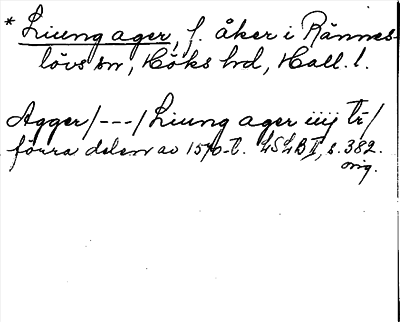 * Liung ager, f. åker i Rännes-
lövs sn, Höks hd, Hall. l.
Agger/---/Liung ager iiij tr/
förra delen av 1570-t. LSLB II, s. 382.
orig.